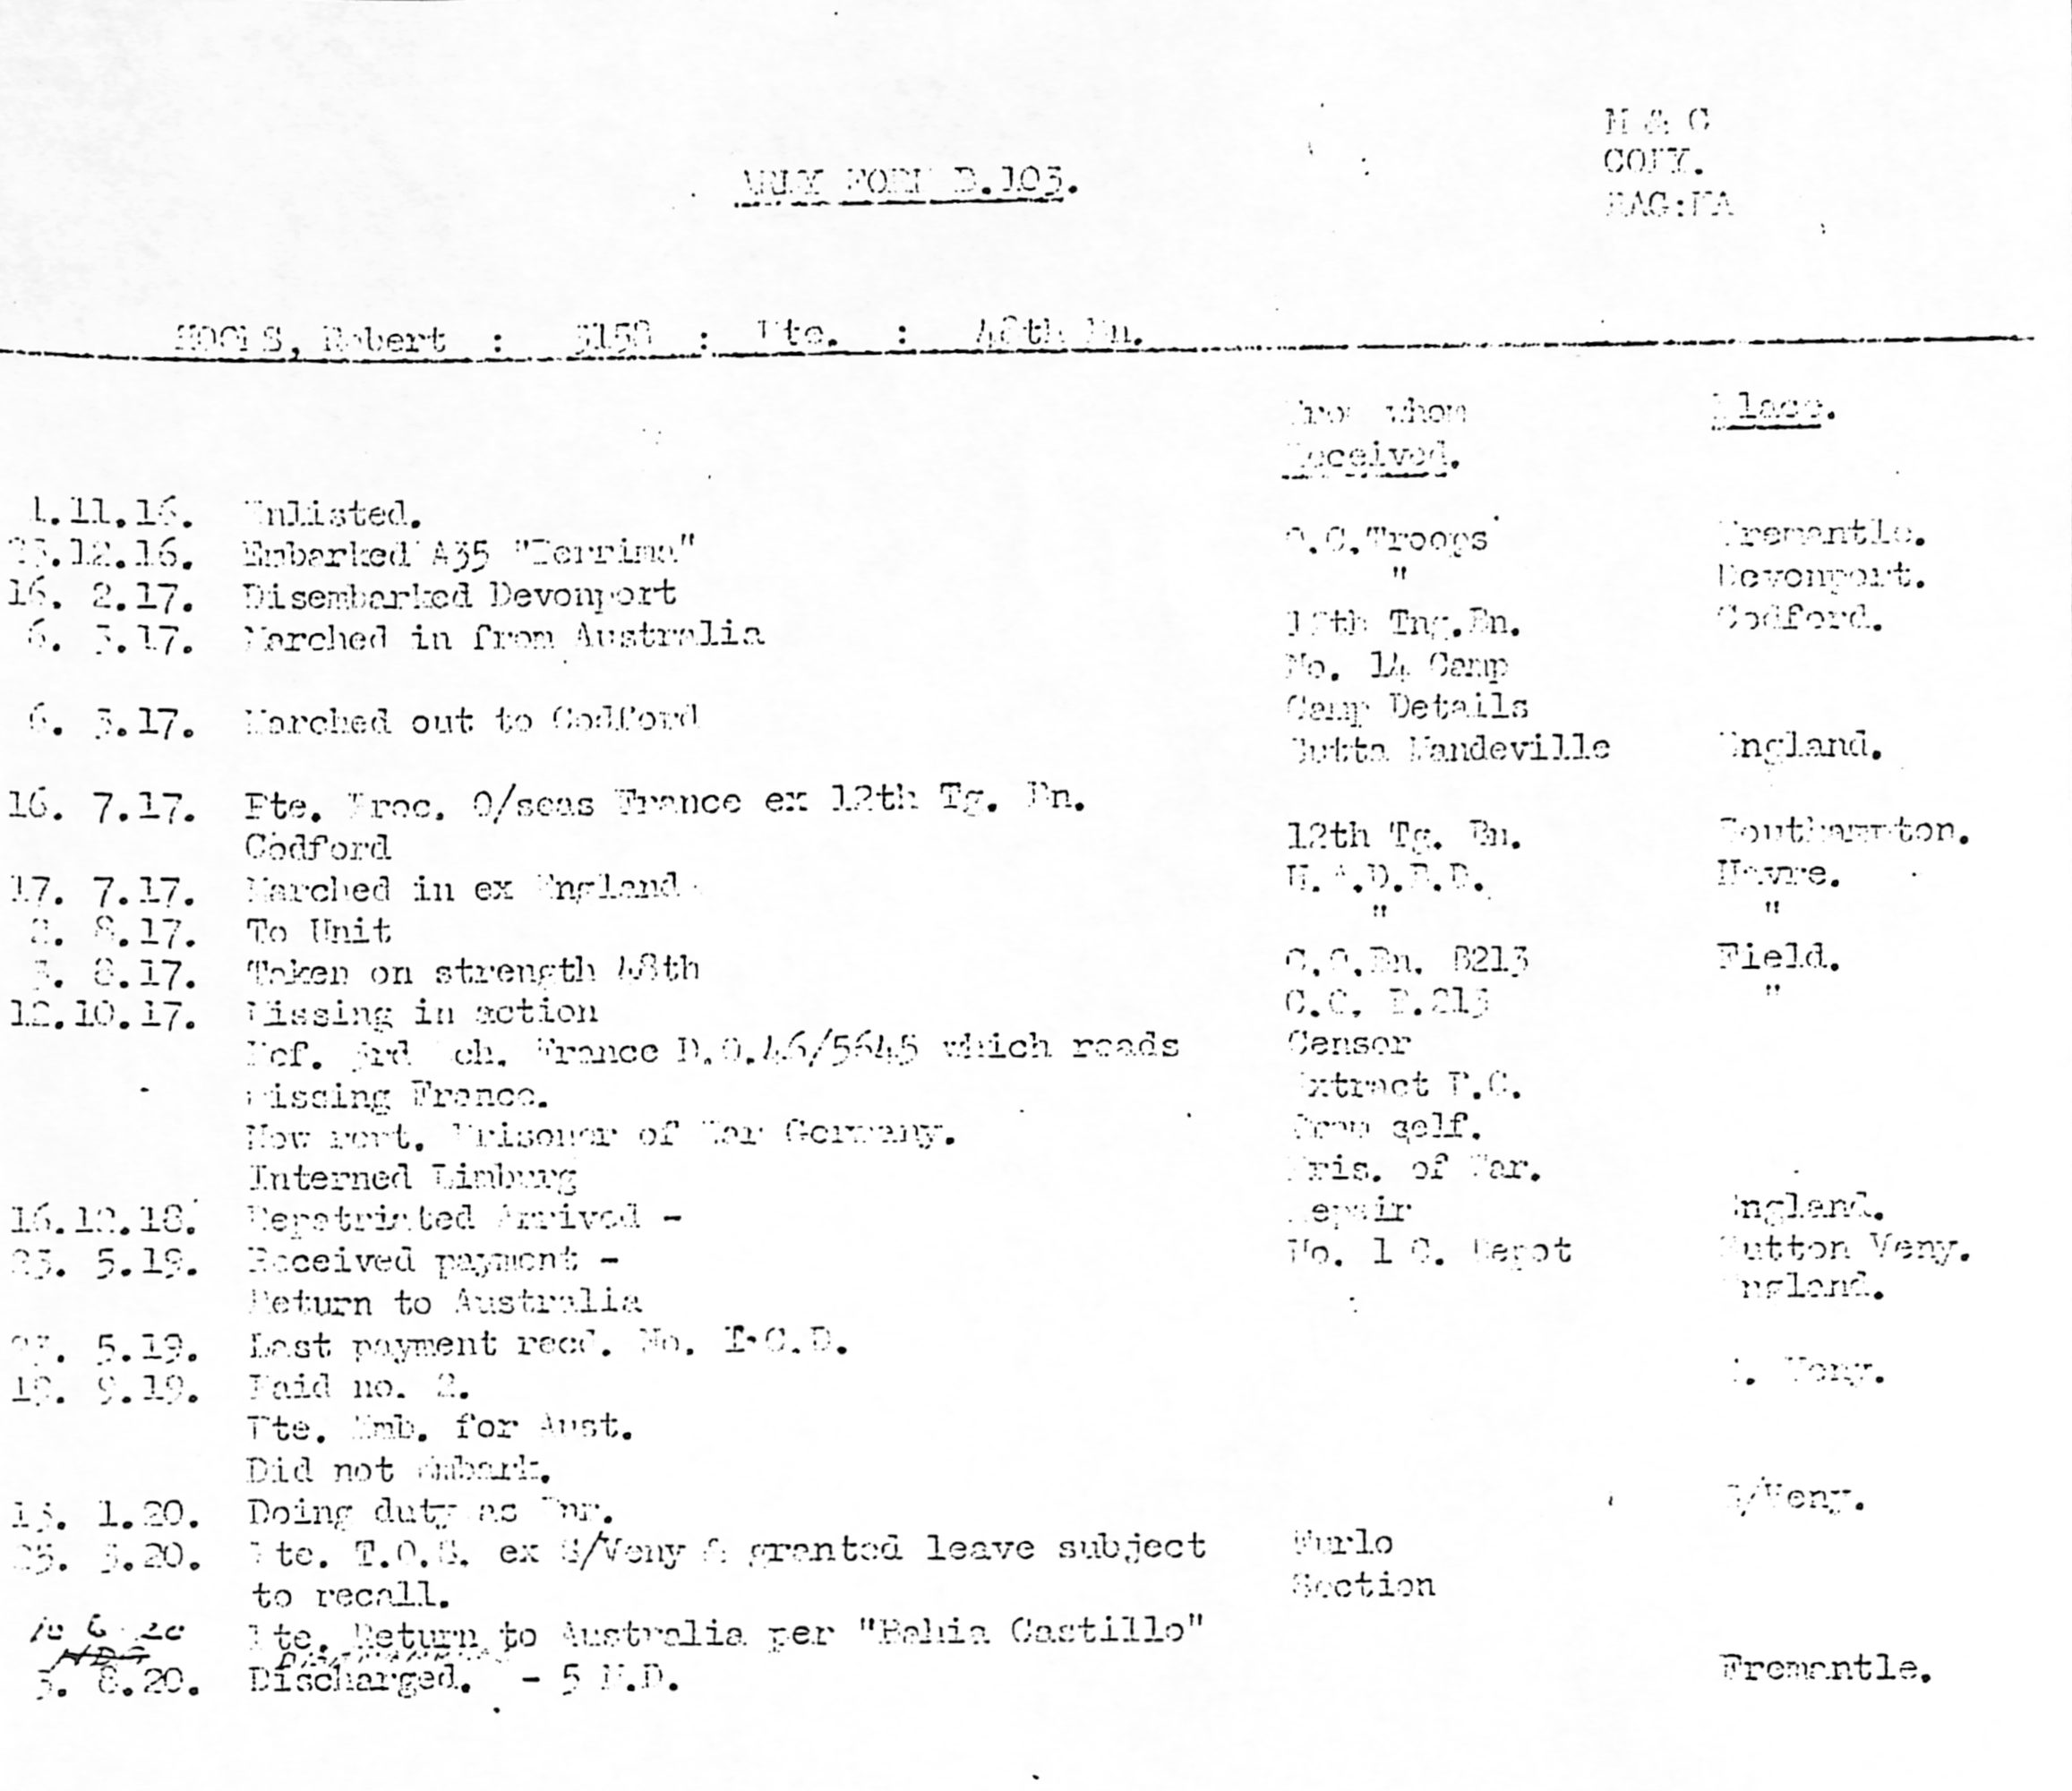 M & C
COPY.
ARMY FORM B.103.
Robert : 3158 : Pte. : 48th Bn.
From whom Place.
Received.
1.11.16. Enlisted.
23.12.16. Embarked A35 "Berrima" O.C.Troops Fremantle.
16. 2.17. Disembarked Devonport " Devonport.
6. 3.17. Marched in from Australia Tng.Bn. Codford.
No. 14 Camp
6. 3.17. Marched out to Codford Camp Details
Mandeville England.
16. 7.17. Pte. Proc. O/seas France ex 12th Tg. Bn.
Codford 12th Tg. Bn. Southampton.
17. 7.17. Marched in ex England Havre.
2. 8.17. To Unit " "
3. 8.17. Taken on strength 48th C.O.Bn. B213 Field.
12.10.17. Missing in action C.O. B.213 "
Ref. 3rd Ech. France D.O.46/5645 which reads Censor
Missing France. Extract P.C.
Now rept. Prisoner of War Germany. from self.
Interned Limburg Pris. of War.
16.12.18. Repatriated Arrived - Repair England.
23. 5.19. Received payment - No. 1 C. Depot Sutton Veny.
Return to Australia England.
23. 5.19. Last payment recd. No. I.C.D.
19. 9.19. Paid no. 2. S. Veny.
Pte. Emb. for Aust.
Did not embark.
13. 1.20. Doing duty as S/Veny.
25. 3.20. Pte. T.O.S. ex S/Veny & granted leave subject Furlo
to recall. Section
10 6 20 Pte. Return to Australia per "Bahia Castillo"
3. 8.20. Discharged. - 5 M.D. Fremantle.